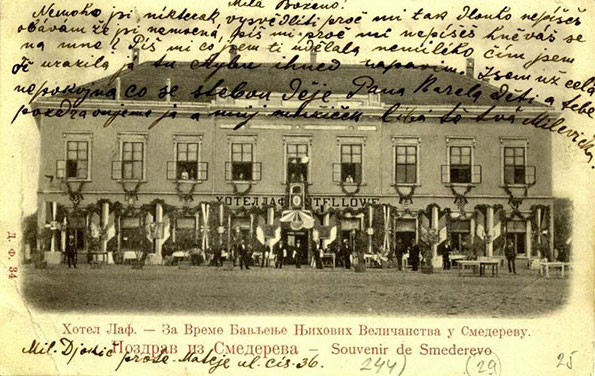 Milá Boženo!
Nemoho si nikterak vysvětliti proč mi tak dlouho nepíšeš
obávám že jsi nemocná, piš mi proč mi nepíšeš hněváš se
na mne? Piš mi co jsem ti udělala nemilého čím jsem
Tě urazila ja tu chybu ihned napravim. Jsem už celá
nepokojna co se stebou děje Pana Karela Děti a tebe
pozdravujeme ja a můj mužíček líbá tě tvá Milevička
ХОТЕЛ ЛАФ HÔTEL LÖWE
Д. Ф. 34
Хотел Лаф. — За Време Бављење Њихових Величанства у Смедереву.
Поздрав из Смедерева — Souvenir de Smederevo
Mil. Djokić prote Mateje ul. čis. 36.
244) (29) 25